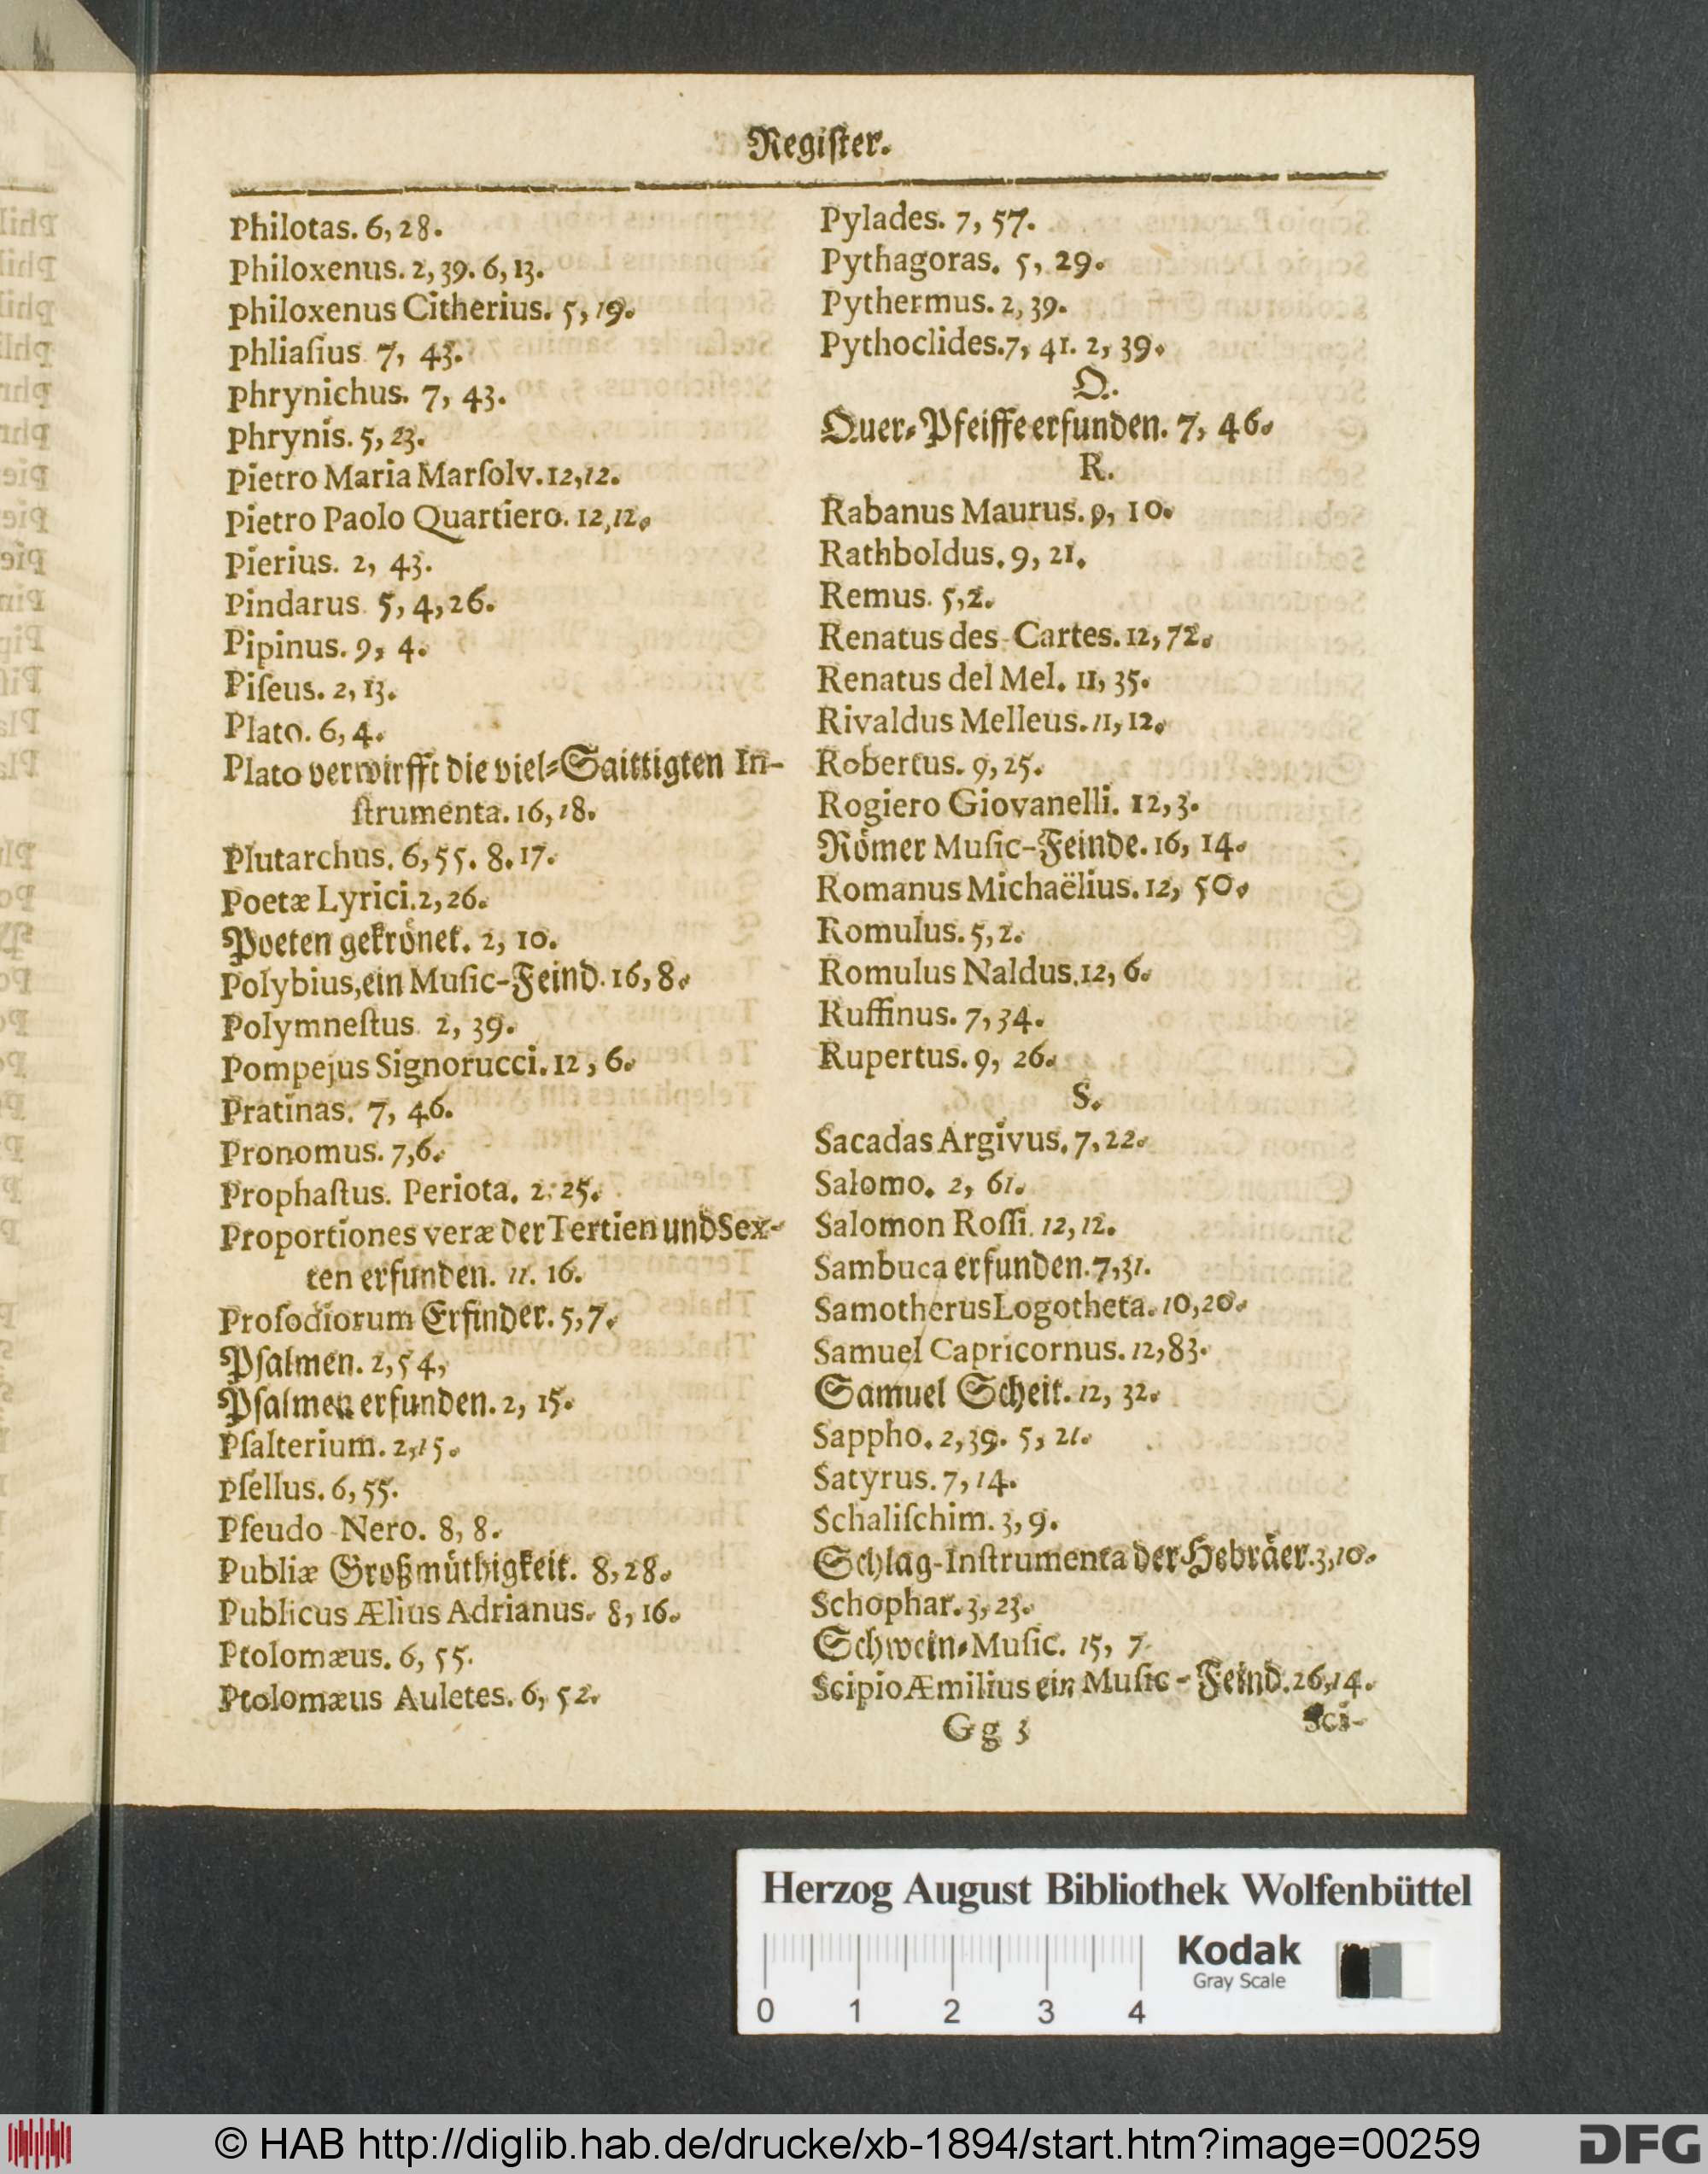 Regiſter.
Philotas. 6, 28.
Philoxenus. 2, 39. 6, 13.
philoxenus Citherius. 5, 19.
phliaſius 7, 43.
phrynichus. 7, 43.
phrynis. 5, 23.
Pietro Maria Marſolv. 12, 12.
Pietro Paolo Quartiero. 12, 12.
Pierius. 2, 43.
Pindarus 5, 4, 26.
Pipinus. 9, 4.
Piſeus. 2, 13.
Plato. 6, 4.
Plato verwirfft die viel-Saittigten In-
ſtrumenta. 16, 18.
Plutarchus. 6, 55. 8. 17.
Poetæ Lyrici. 2, 26.
Poeten gekrönet. 2, 10.
Polybius, ein Muſic-Feind. 16, 8.
Polymneſtus 2, 39.
Pompejus Signorucci. 12, 6.
Pratinas. 7, 46.
Pronomus. 7, 6.
Prophaſtus. Periota. 2. 25.
Proportiones veræ der Tertien und Sex-
ten erfunden. 11. 16.
Proſodiorum Erfinder. 5, 7.
Pſalmen. 2, 54,
Pſalmen erfunden. 2, 15.
Pſalterium. 2, 15.
Pſellus. 6, 55.
Pſeudo-Nero. 8, 8.
Publiæ Großmüthigkeit. 8, 28.
Publicus Ælius Adrianus. 8, 16.
Ptolomæus. 6, 55.
Ptolomæus Auletes. 6, 52.
Pylades. 7, 57.
Pythagoras. 5, 29.
Pythermus. 2, 39.
Pythoclides. 7, 41. 2, 39.
Q.
Quer-Pfeiffe erfunden. 7, 46.
R.
Rabanus Maurus. 9, 10.
Rathboldus. 9, 21.
Remus. 5, 2.
Renatus des-Cartes. 12, 72.
Renatus del Mel. 11, 35.
Rivaldus Melleus. 11, 12.
Robertus. 9, 25.
Rogiero Giovanelli. 12, 3.
Römer Muſic-Feinde. 16, 14.
Romanus Michaëlius. 12, 50.
Romulus. 5, 2.
Romulus Naldus. 12, 6.
Ruffinus. 7, 34.
Rupertus. 9, 26.
S.
Sacadas Argivus. 7, 22.
Salomo. 2, 61.
Salomon Roſſi. 12, 12.
Sambuca erfunden. 7, 31.
Samotherus Logotheta. 10, 20.
Samuel Capricornus. 12, 83.
Samuel Scheit. 12, 32.
Sappho. 2, 39. 5, 21.
Satyrus. 7, 14.
Schaliſchim. 3, 9.
Schlag-Inſtrumenta der Hebräer. 3, 10.
Schophar. 3, 23.
Schwein-Muſic. 15, 7.
Scipio Æmilius ein Muſic-Feind. 26, 14.
Gg 3
Sci-
Herzog August Bibliothek Wolfenbüttel
Kodak
Gray Scale
0 1 2 3 4
© HAB http://diglib.hab.de/drucke/xb-1894/start.htm?image=00259
DFG